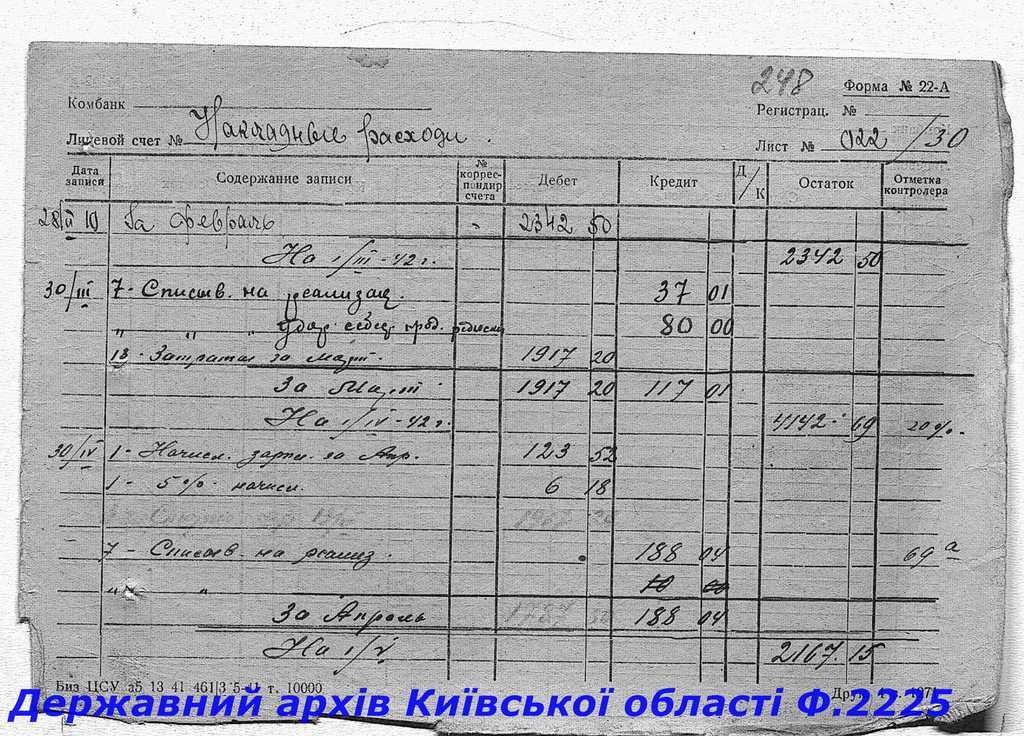 248
Форма № 22-А
Комбанк
Регистрац. №
Лицевой счет № Накладные расходы.
Лист № 022/30
Дата записи Содержание записи № коррес-пондир счета Дебет Кредит Д/К Остаток Отметка контролера
28/II За февраль 2342 50
На 1/III-42 г. 2342 50
30/III 7- Списыв. на реализац. 37 01
" " " прод. 80 00
13- Затраты за март. 1917 20
За Март 1917 20 117 01
На 1/IV-42 г. 4142 69 20%.
30/IV 1- Начисл. зарпл. за Апр. 123 52
1- 5% начисл. 6 18
7- Списыв. на реализ. 188 04 69а
" " 10 00
За Апрель 188 04
На 1/V 2167.15
Биз ЦСУ 13 41 461 т. 10000
Державний архів Київської області Ф.2225